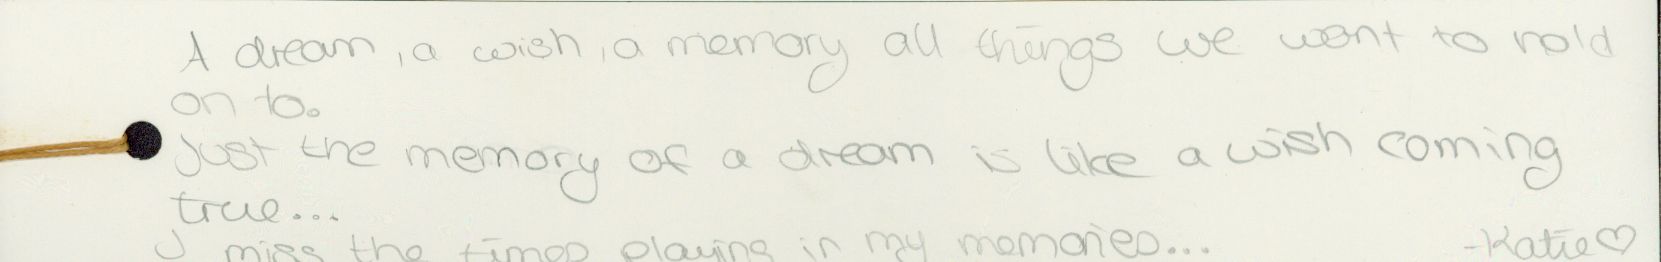 A dream, a wish, a memory all things we want to hold
on to.
Just the memory of a dream is like a wish coming
true...
I miss the times playing in my memories... -Katie♡